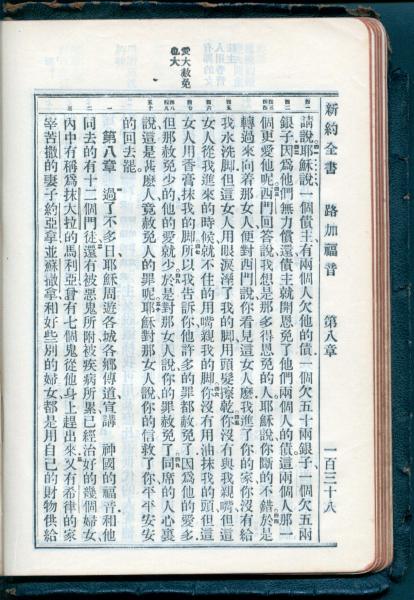 新約全書 路加福音 第八章 一百三十八
請說耶穌說一個債主有兩個人欠他的債一個欠五十兩銀子一個欠五兩
銀子因爲他們無力償還債主就開恩免了他們兩個人的債這兩個人那一
個更愛他呢西門回答說我想是那多得恩免的人耶穌說你斷的不錯於是
轉過來向着那女人便對西門說你看見這女人麽我進了你的家你沒有給
我水洗脚但這女人用眼淚溼了我的脚用頭髮擦乾你沒有與我親嘴但這
女人從我進來的時候就不住的用嘴親我的脚你沒有用油抹我的頭但這
女人用香膏抹我的脚所以我告訴你他許多的罪都赦免了因爲他的愛多
但那赦免少的他的愛就少於是對那女人說你的罪赦免了同席的人心裏
說這是甚麽人竟赦免人的罪呢耶穌對那女人說你的信救了你平平安安
的回去罷
第八章 過了不多日耶穌周遊各城各鄉傳道宣講 神國的福音和他
同去的有十二個門徒還有被惡鬼所附被疾病所累已經治好的幾個婦女
內中有稱爲抹大拉的馬利亞曾有七個鬼從他身上趕出來又有希律的家
宰苦撒的妻子約亞拿並蘇撒拿和好些別的婦女都是用自己的財物供給